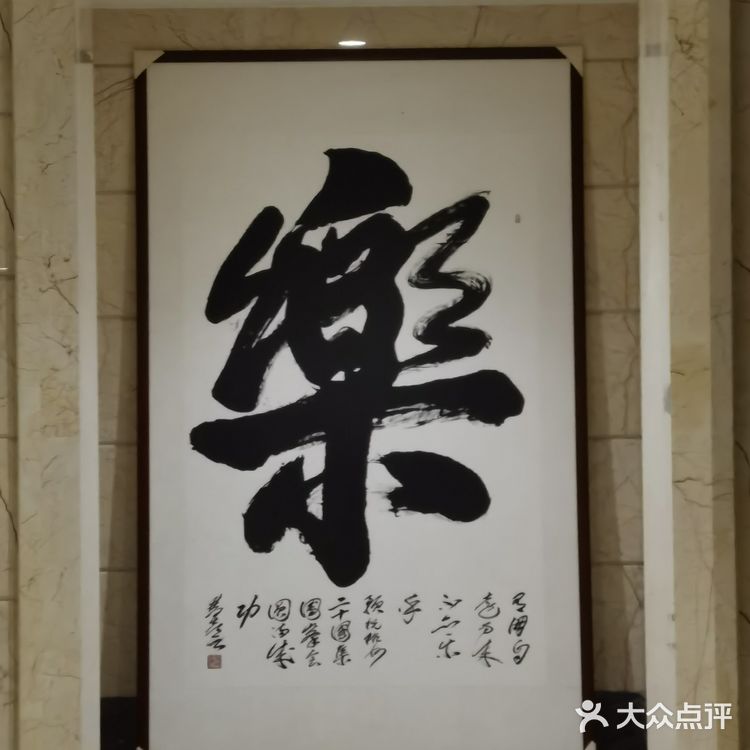 樂
有国自
远方来
不亦乐
乎
预祝杭州
二十國集
團峰会
圆满成
功
大众点评